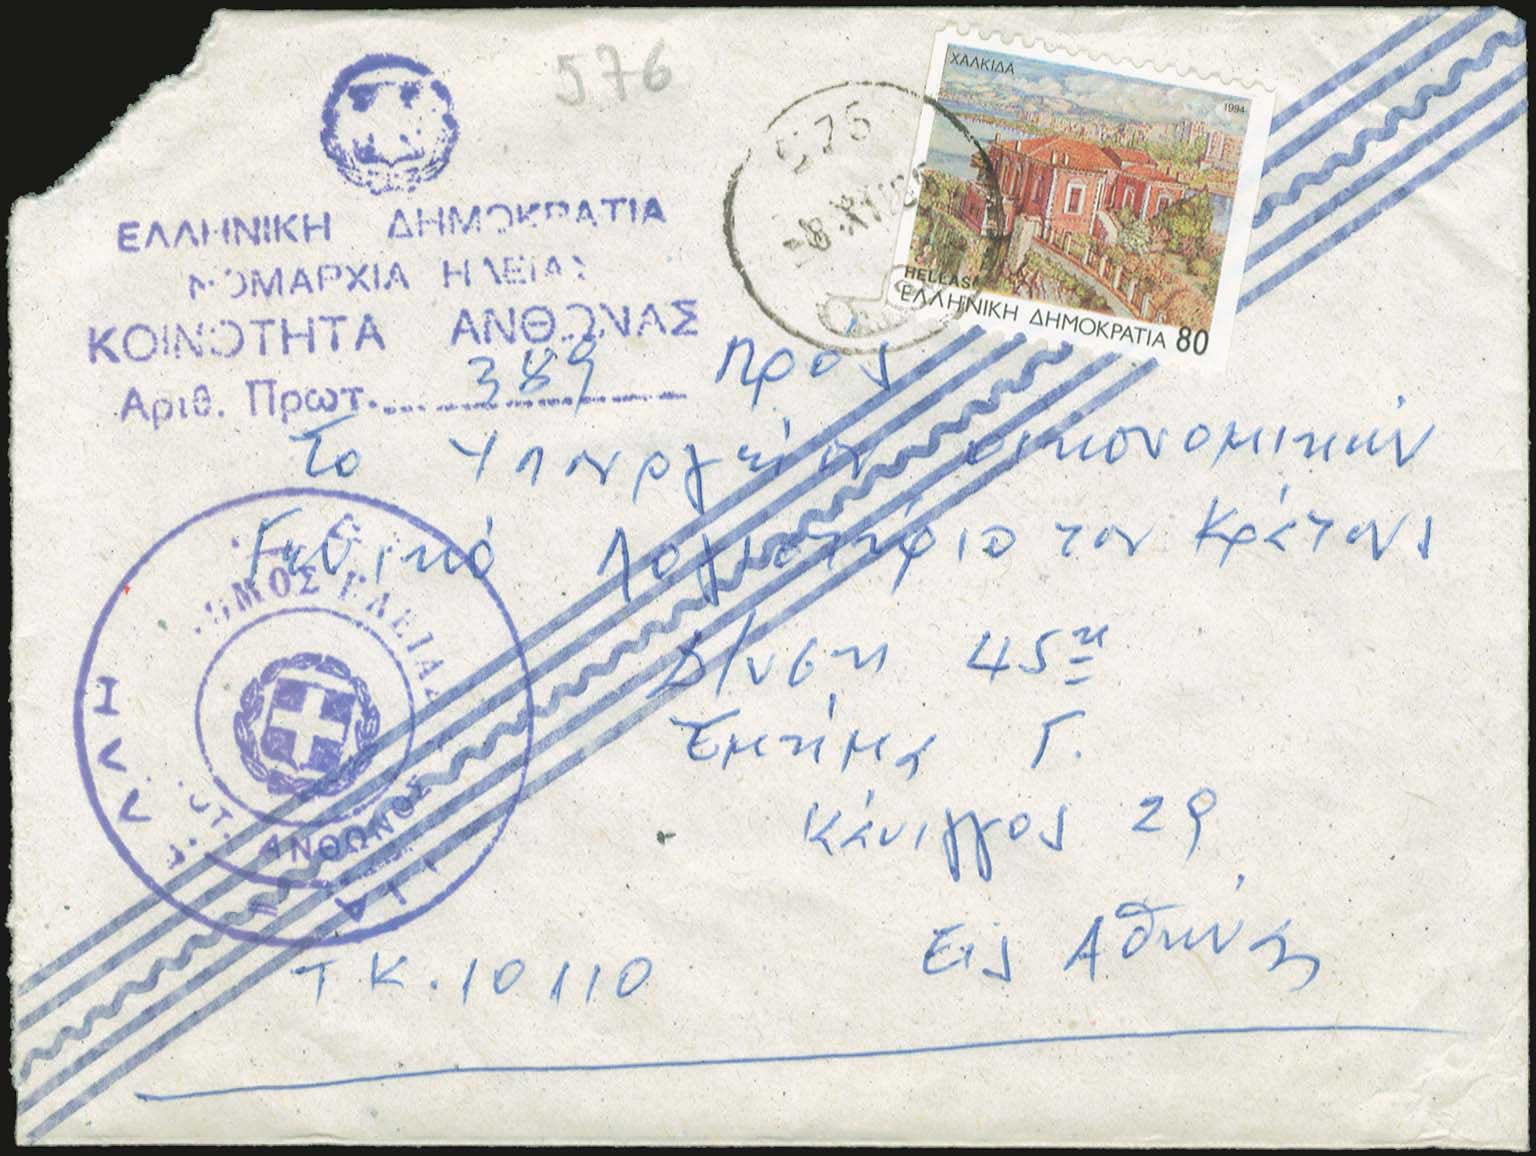 576
ΕΛΛΗΝΙΚΗ ΔΗΜΟΚΡΑΤΙΑ
ΝΟΜΑΡΧΙΑ ΗΛΕΙΑΣ
ΚΟΙΝΟΤΗΤΑ ΑΝΘΩΝΑΣ
Αριθ. Πρωτ. 389
ΧΑΛΚΙΔΑ
1994
HELLAS
ΕΛΛΗΝΙΚΗ ΔΗΜΟΚΡΑΤΙΑ 80
-8.XII
Προς
Το Υπουργείον οικονομικών
Γενικό Λογιστήριο του Κράτους
Δ/νση 45η
Τμήμα Γ.
Κάνιγγος 29
Εις Αθήνας
Τ.Κ. 10110
ΝΟΜΟΣ ΗΛΕΙΑΣ
ΚΟΙΝΟΤ. ΑΝΘΩΝΟΣ